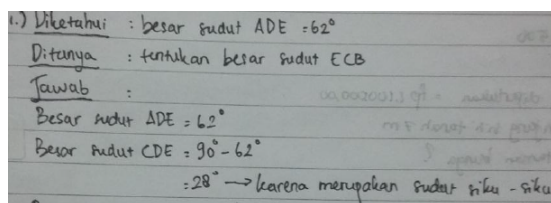 1.) Diketahui : besar sudut ADE = 62°
Ditanya : tentukan besar sudut ECB
Jawab :
Besar sudut ADE = 62°
Besar sudut CDE = 90° - 62°
= 28° → karena merupakan sudut siku - siku